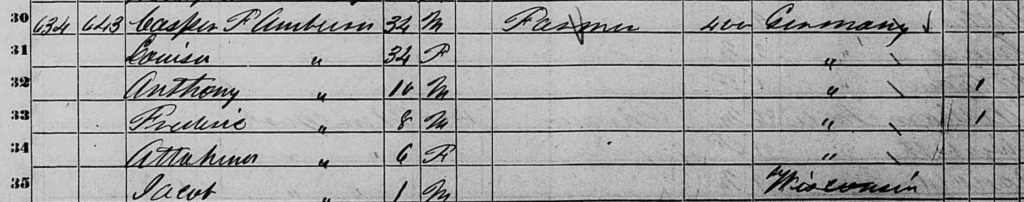 30 634 643 Casper F Amburn 34 M Farmer 400 Germany
31 Louisa " 34 F "
32 Anthony " 10 M " 1
33 Frederic " 8 M " 1
34 " 6 F "
35 Jacob " 1 M Wisconsin